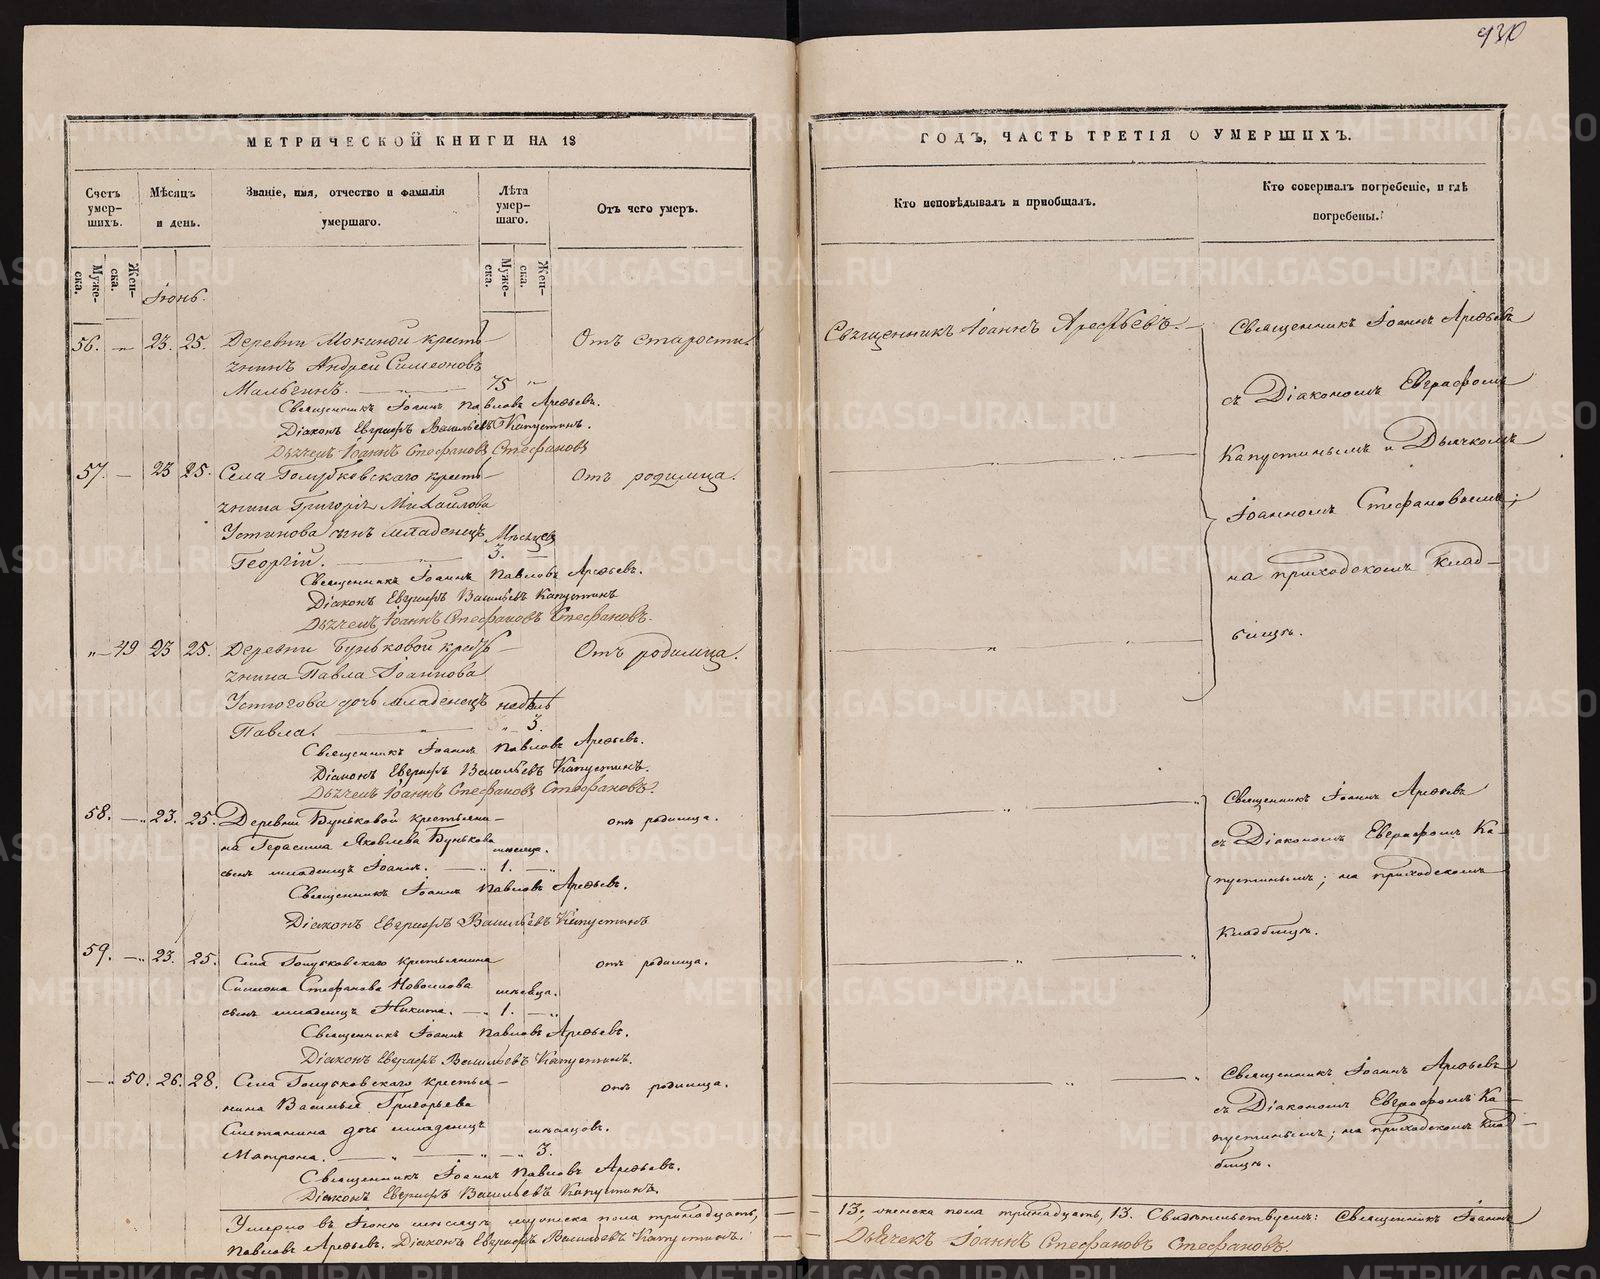 930
МЕТРИЧЕСКОЙ КНИГИ НА 18
Счетъ умер-шихъ.
Мѣсяцъ и день.
Званіе, имя, отчество и фамилія умершаго.
Лѣта умер-шаго.
Отъ чего умеръ.
Муже-ска.
Жен-ска.
Муже-ска.
Жен-ска.
Іюнь.
56. „ 23. 25. Деревни Мокиной кресть- Отъ старости
янинъ Андрей Симеоновъ
Мальгинъ. 75 „
Священникъ Іоаннъ Павловъ Арефьевъ.
Діаконъ Евграфъ Васильевъ Капустинъ.
Дьячекъ Іоаннъ Стефановъ Стефановъ
57. — 23 25. Села Голубковскаго кресть- Отъ родимца.
янина Григорія Михайлова
Устинова сынъ младенецъ Мѣсяцев
Георгій. 3. —
Священникъ Іоаннъ Павловъ Арефьевъ.
Діаконъ Евграфъ Васильевъ Капустинъ
Дьячекъ Іоаннъ Стефановъ Стефановъ.
„ — 49 23 25. Деревни Буньковой кресть- Отъ родимца.
янина Павла Іоаннова
Устюгова дочь младенецъ недѣль
Павла. „ 3.
Священникъ Іоаннъ Павловъ Арефьевъ.
Діаконъ Евграфъ Васильевъ Капустинъ.
Дьячекъ Іоаннъ Стефановъ Стефановъ.
58. — „ 23. 25. Деревни Буньковой крестьяни- отъ родимца.
на Герасима Яковлева Бунькова мѣсяца.
сынъ младенецъ Іоаннъ. — „ 1. — „
Священникъ Іоаннъ Павловъ Арефьевъ.
Діаконъ Евграфъ Васильевъ Капустинъ
59. — „ 23. 25. Села Голубковскаго крестьянина отъ родимца.
Симеона Стефанова Новоселова мѣсяца.
сынъ младенецъ Никита. — „ 1. — „
Священникъ Іоаннъ Павловъ Арефьевъ.
Діаконъ Евграфъ Васильевъ Капустинъ.
— „ 50. 26. 28. Села Голубковскаго крестья- отъ родимца.
нина Василья Григорьева
Сметанина дочь младенецъ мѣсяцовъ.
Матрона. — „ — „ — „ 3.
Священникъ Іоаннъ Павловъ Арефьевъ.
Діаконъ Евграфъ Васильевъ Капустинъ.
Умерло въ Іюнѣ мѣсяцѣ мужеска пола тринадцать,
Павловъ Арефьевъ. Діаконъ Евграфъ Васильевъ Капустинъ.
ГОДЪ, ЧАСТЬ ТРЕТІЯ О УМЕРШИХЪ.
Кто исповѣдывалъ и пріобщалъ.
Кто совершалъ погребеніе, и гдѣ погребены.
Священникъ Іоаннъ Арефьевъ. —
Священникъ Іоаннъ Арефьевъ
съ Діакономъ Евграфомъ
Капустинымъ и Дьячкомъ
Іоанномъ Стефановымъ;
на приходскомъ клад-
бищѣ.
Священникъ Іоаннъ Арефьевъ
съ Діакономъ Евграфомъ Ка-
пустинымъ; на приходскомъ
кладбищѣ.
Священникъ Іоаннъ Арефьевъ
съ Діакономъ Евграфомъ Ка-
пустинымъ; на приходскомъ клад-
бищѣ.
13; женска пола тринадцать, 13. Свидѣтельствуемъ: Священникъ Іоаннъ
Дьячекъ Іоаннъ Стефановъ Стефановъ.
METRIKI.GASO-URAL.RU